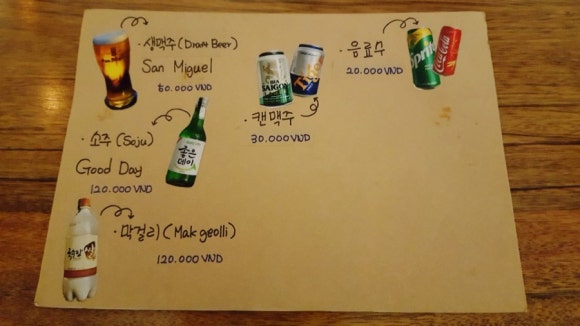 · 생맥주 (Draft Beer)
San Miguel
50.000 VND
· 소주 (Soju)
Good Day
120.000 VND
좋은
데이
· 막걸리 (Makgeolli)
120.000 VND
BIA
SAIGON
· 캔맥주
30.000 VND
· 음료수
20.000 VND
Sprite
Coca-Cola